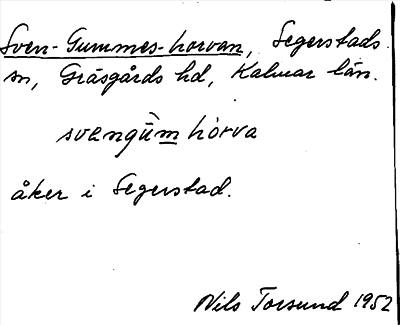 Sven-Gummes-horvan, Segerstads
sn, Gräsgårds hd, Kalmar län.
svengùm hórva
åker i Segerstad.
Nils Torsund 1952